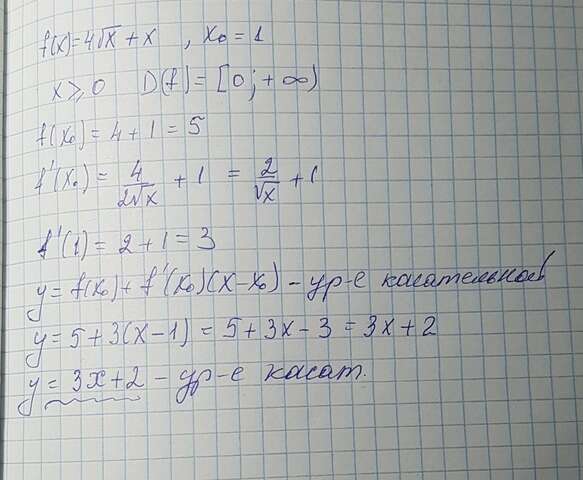 f(x)=4√x + x , x₀ = 1
x ⩾ 0 D(f) = [0; +∞)
f(x₀) = 4 + 1 = 5
f'(x₀) = 4/(2√x) + 1 = 2/√x + 1
f'(1) = 2 + 1 = 3
y = f(x₀) + f'(x₀)(x - x₀) - ур-е касательной
y = 5 + 3(x - 1) = 5 + 3x - 3 = 3x + 2
y = 3x + 2 - ур-е касат.